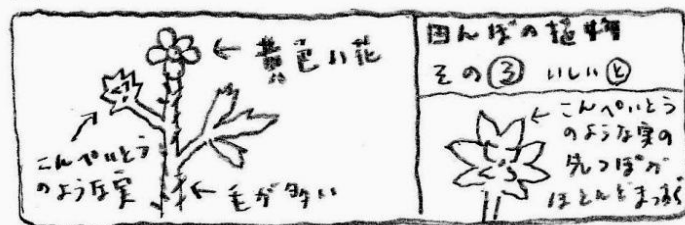 黄色い花
こんぺいとう
のような実
毛が多い
田んぼの植物
その③ いしい㋣
こんぺいとう
のような実の
先っぽが
ほとんどまっすぐ